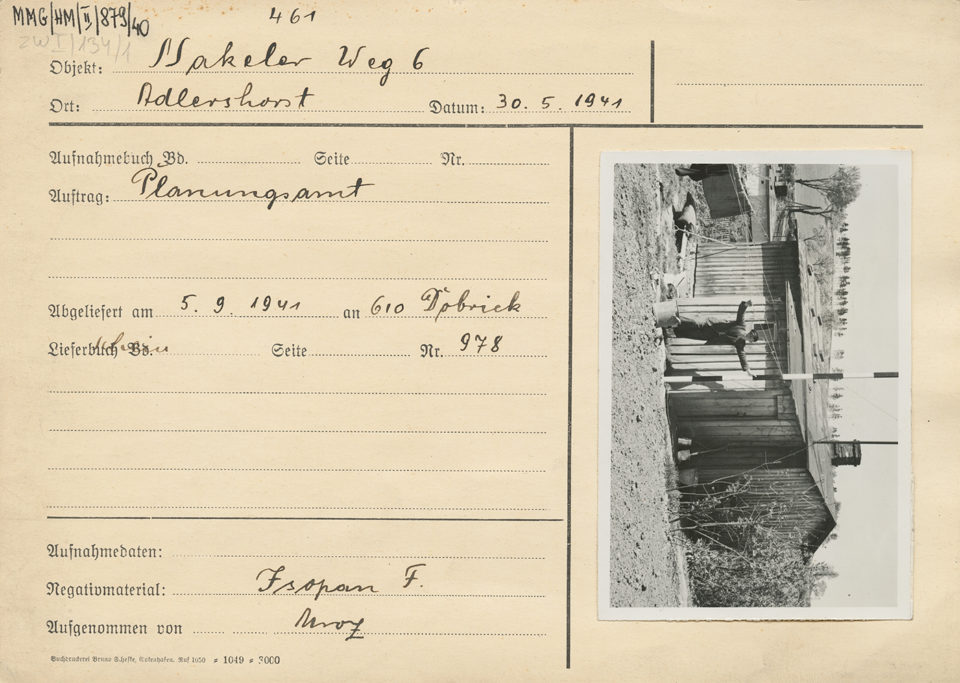 MMG/HM/II/879/40
461
ZWI/134/1
Objekt: Nakeler Weg 6
Ort: Adlershorst Datum: 30. 5. 1941
Aufnahmebuch Bd. Seite Nr.
Auftrag: Planungsamt
Abgeliefert am 5. 9. 1941 an 610 Döbrick
Lieferbuch Bd. Seite Nr. 978
Aufnahmedaten:
Negativmaterial: Isopan F.
Aufgenommen von Mroz
Buchdruckerei Bruno Scheffe, Gotenhafen. Ruf 1050 ≠ 1049 ≠ 3000